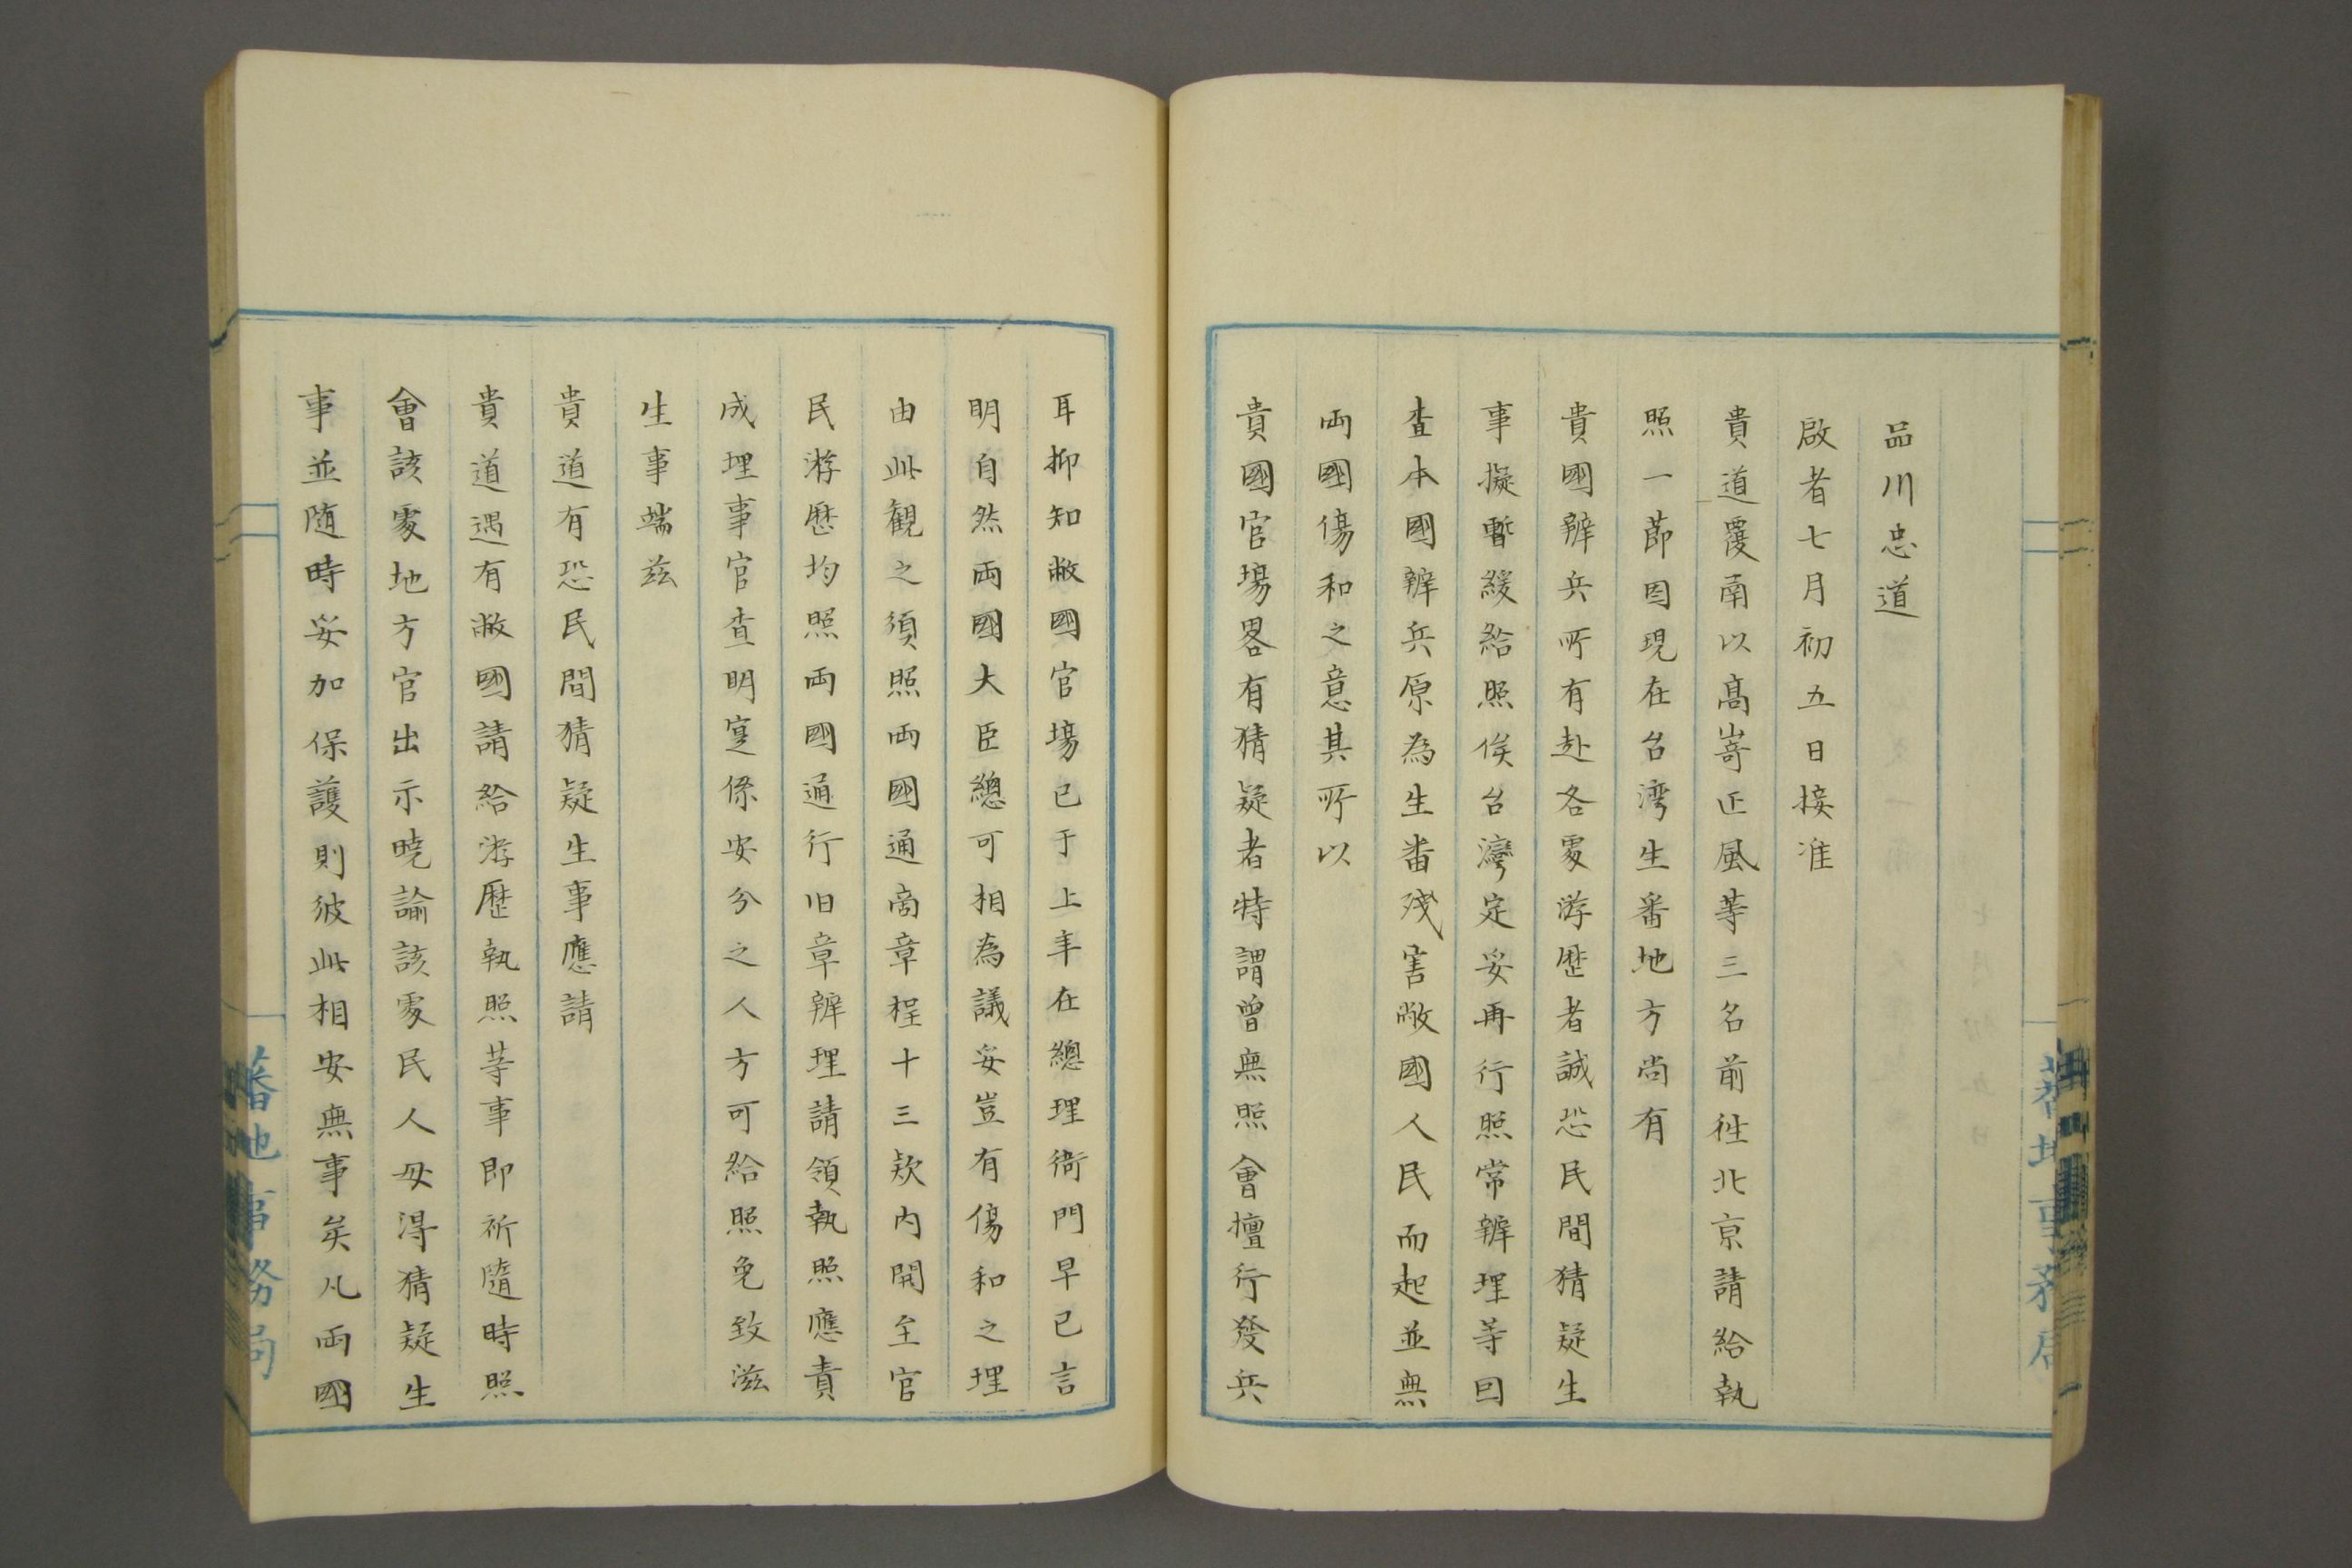 品川忠道
啟者七月初五日接准
貴道覆南以髙嵜正風等三名前徃北京請給執
照一莭因現在台湾生番地方尚有
貴國辦兵所有赴各䖏游歴者誠恐民間猜疑生
事擬暫緩給照俟台灣定妥再行照常辦理等因
査本國辦兵原為生畨残害敝國人民而起並無
両國傷和之意其所以
貴國官塲畧有猜疑者特謂曾無照會擅行發兵
耳抑知敝國官塲已于上年在總理衙門早已言
明自然両國大臣總可相為議妥豈有傷和之理
由此観之須照両國通商章程十三欵内開至官
民游歴均照両國通行旧章辦理請領執照應責
成理事官査明寔係安分之人方可給照免致滋
生事端茲
貴道有恐民間猜疑生事應請
貴道遇有敝國請給游歴執照等事即祈隨時照
會該䖏地方官出示曉諭該䖏民人毋得猜疑生
事並随時妥加保護則彼此相安無事矣凡両國
蕃地事務局